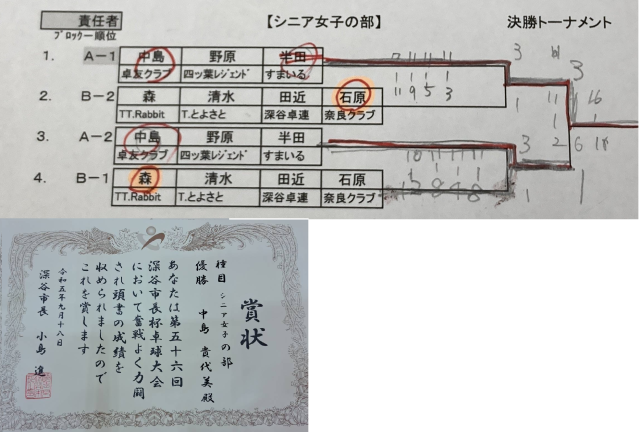 責任者 【シニア女子の部】 決勝トーナメント
ブロック一順位
1. A－1 中島 野原 半田
卓友クラブ 四ッ葉レジェンド すまいる
2. B－2 森 清水 田近 石原
TT.Rabbit T.とよさと 深谷卓連 奈良クラブ
3. A－2 中島 野原 半田
卓友クラブ 四ッ葉レジェンド すまいる
4. B－1 森 清水 田近 石原
TT.Rabbit T.とよさと 深谷卓連 奈良クラブ
賞状
種目 シニア女子の部
優勝 中島 貴代美殿
あなたは第五十六回
深谷市長杯卓球大会
において奮戦よく力闘
され頭書の成績を
収められましたので
これを賞します
令和五年九月十八日
深谷市長 小島 進